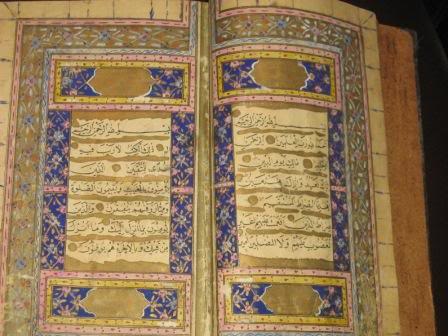 بِسْمِ اللهِ الرَّحْمٰنِ الرَّحِيمِ
الْحَمْدُ لِلّٰهِ رَبِّ الْعَالَمِينَ الرَّحْمٰنِ
الرَّحِيمِ مَالِكِ يَوْمِ الدِّينِ
إِيَّاكَ نَعْبُدُ وَإِيَّاكَ نَسْتَعِينُ اهْدِنَا
الصِّرَاطَ الْمُسْتَقِيمَ صِرَاطَ الَّذِينَ
أَنْعَمْتَ عَلَيْهِمْ غَيْرِ
الْمَغْضُوبِ عَلَيْهِمْ وَلَا الضَّالِّينَ
بِسْمِ اللهِ الرَّحْمٰنِ الرَّحِيمِ
الم ذٰلِكَ الْكِتَابُ لَا رَيْبَ فِيهِ
هُدًى لِلْمُتَّقِينَ الَّذِينَ
يُؤْمِنُونَ بِالْغَيْبِ وَيُقِيمُونَ الصَّلٰوةَ
وَمِمَّا رَزَقْنَاهُمْ يُنْفِقُونَ وَالَّذِينَ
يُؤْمِنُونَ بِمَا أُنْزِلَ إِلَيْكَ وَمَا أُنْزِلَ
مِنْ قَبْلِكَ وَبِالْآخِرَةِ هُمْ يُوقِنُونَ